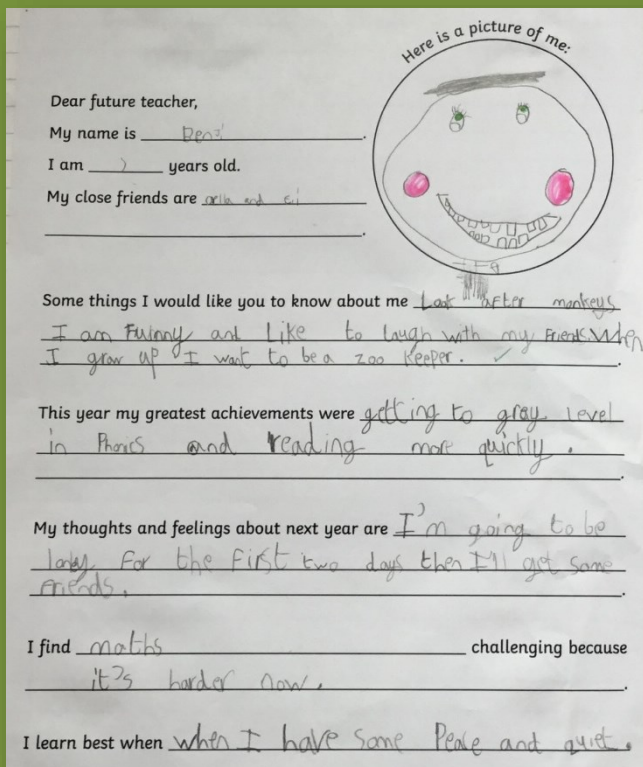 Here is a picture of me:
Dear future teacher,
My name is .
I am years old.
My close friends are and
.
Some things I would like you to know about me Look after monkeys
I am Fuinny and Like to laugh with my Friends. When
I grow up I want to be a zoo Keeper. ✓ .
This year my greatest achievements were getting to gray level
in Phonics and reading more quickly .
.
My thoughts and feelings about next year are I'm going to be
lonley For the First two days then I'll get some
Friends. .
I find maths challenging because
it's harder now. .
I learn best when when I have some Peace and quiet .